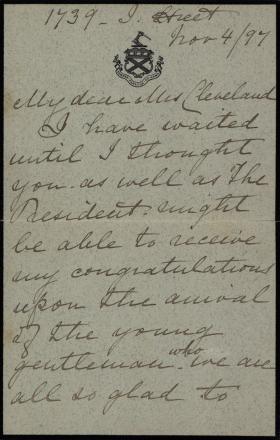 1739 - I. Street
Nov 4/97
My dear Mrs Cleveland
I have waited
until I thought
you - as well as the
President: might
be able to receive
my congratulations
upon the arrival
of the young
gentleman who we are
all so glad to